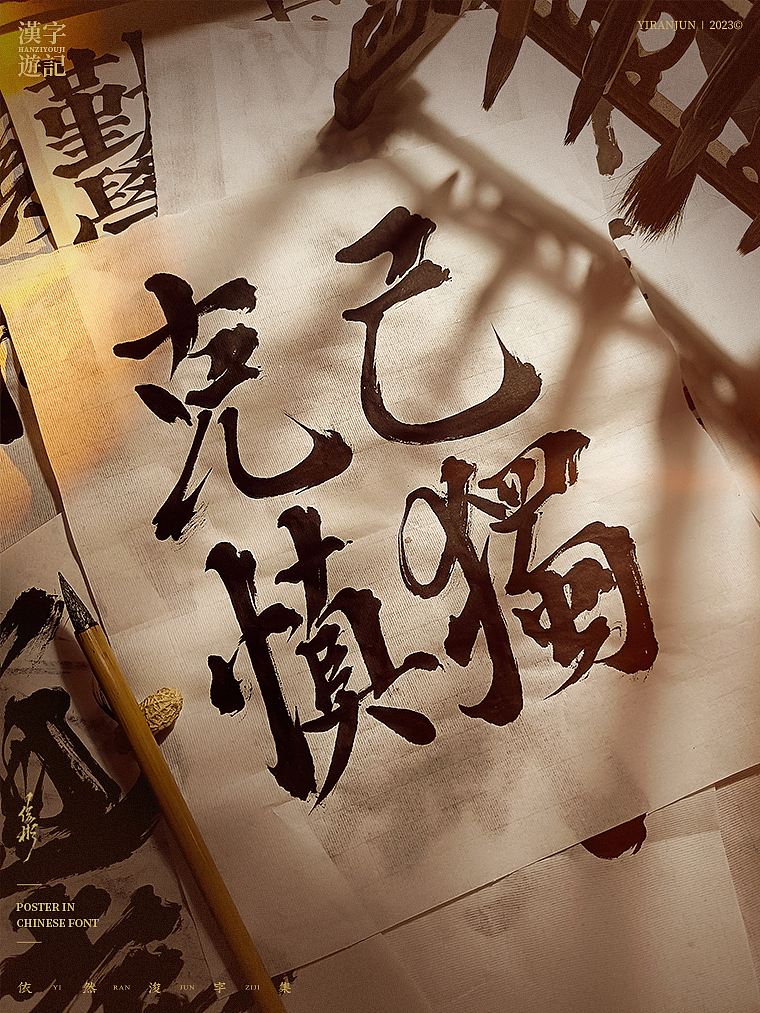 漢字
HANZIYOUJI
遊記
YIRANJUN | 2023©
勤
克己
慎獨
POSTER IN
CHINESE FONT
依 YI 然 RAN 浚 JUN 字 ZIJI 集